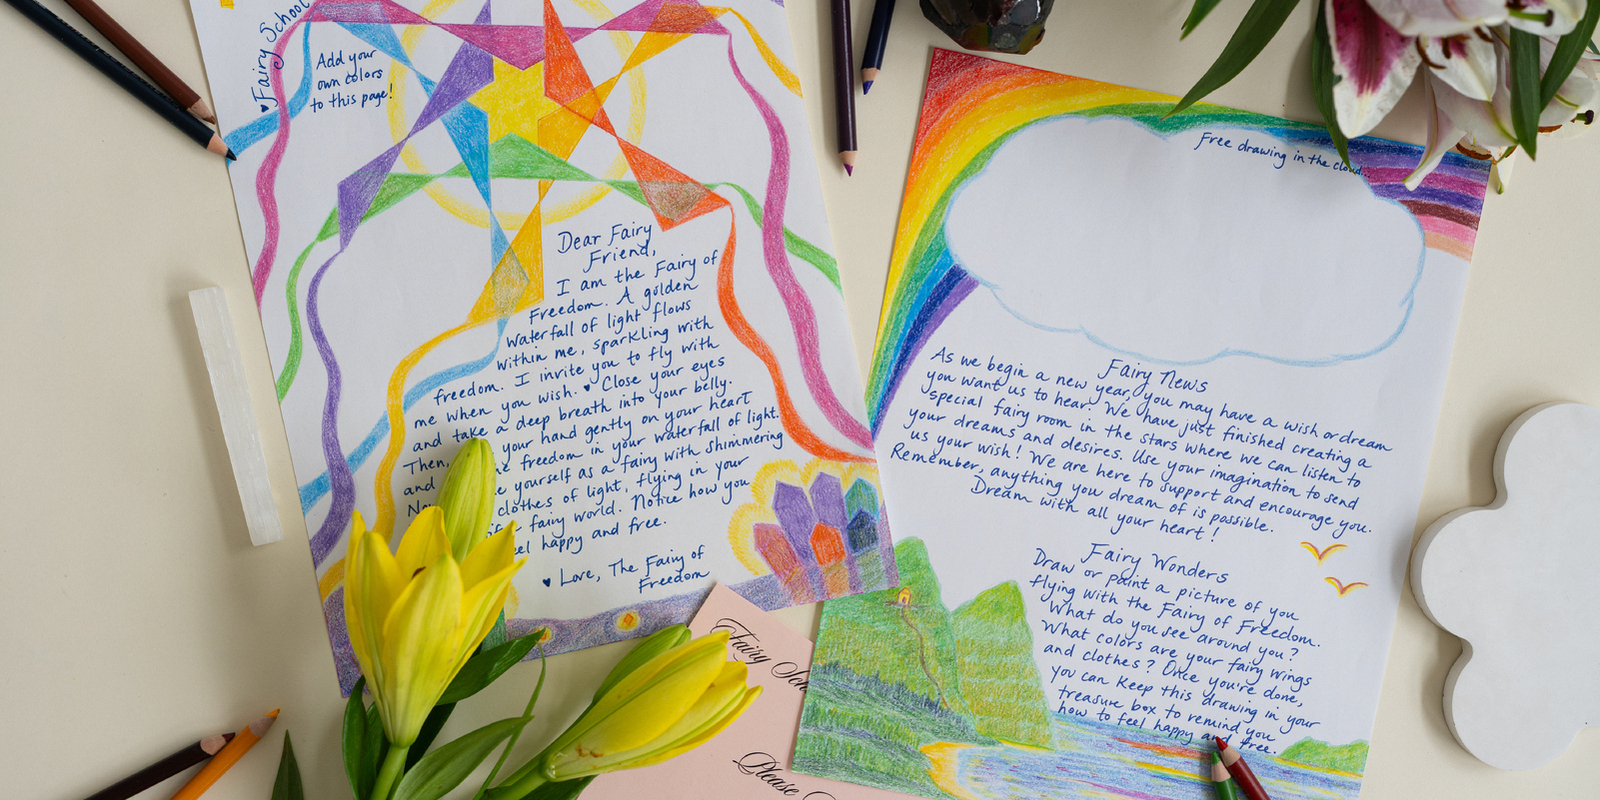 ♥Fairy School
Add your
own colors
to this page!
Dear Fairy
Friend,
I am the Fairy of
Freedom. A golden
waterfall of light flows
within me, sparkling with
freedom. I invite you to fly with
me when you wish. ♥ Close your eyes
and take a deep breath into your belly.
Then, your hand gently on your heart
and freedom in your waterfall of light.
yourself as a fairy with shimmering
clothes of light, flying in your
fairy world. Notice how you
feel happy and free.
♥ Love, The Fairy of
Freedom
Fairy
Please
Free drawing in the cloud...
Fairy News
As we begin a new year, you may have a wish or dream
you want us to hear. We have just finished creating a
special fairy room in the stars where we can listen to
your dreams and desires. Use your imagination to send
us your wish! We are here to support and encourage you.
Remember, anything you dream of is possible.
Dream with all your heart!
Fairy Wonders
Draw or paint a picture of you
flying with the Fairy of Freedom.
What do you see around you?
What colors are your fairy wings
and clothes? Once you're done,
you can keep this drawing in your
treasure box to remind you
how to feel happy and free.